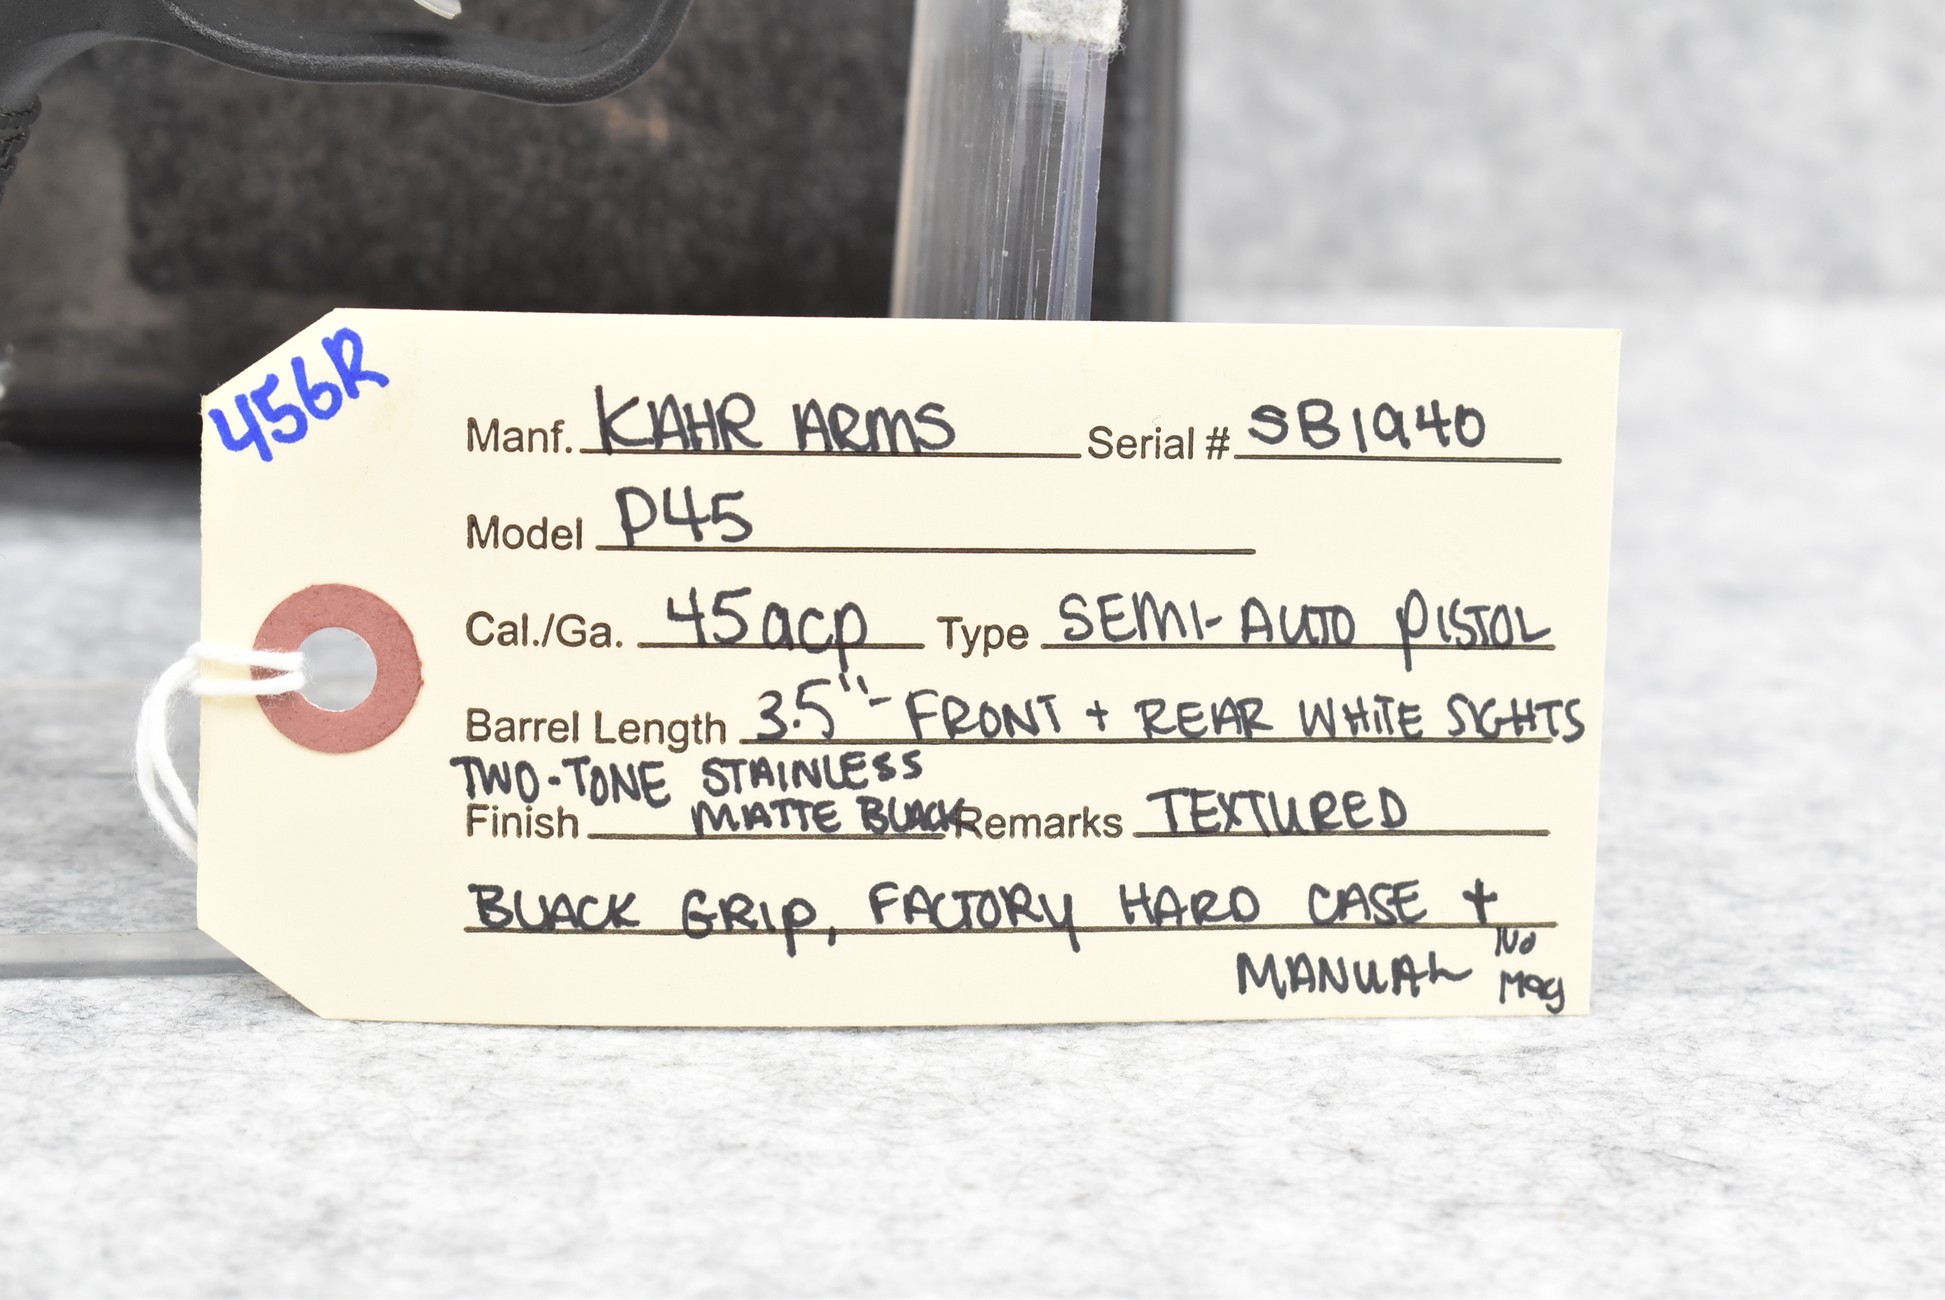 456R
Manf. KAHR ARMS Serial # SB1940
Model P45
Cal./Ga. 45acp Type SEMI-AUTO PISTOL
Barrel Length 3.5"- FRONT + REAR WHITE SIGHTS
TWO-TONE STAINLESS
Finish MATTE BLACK Remarks TEXTURED
BLACK GRIP, FACTORY HARD CASE +
MANUAL No
Mag